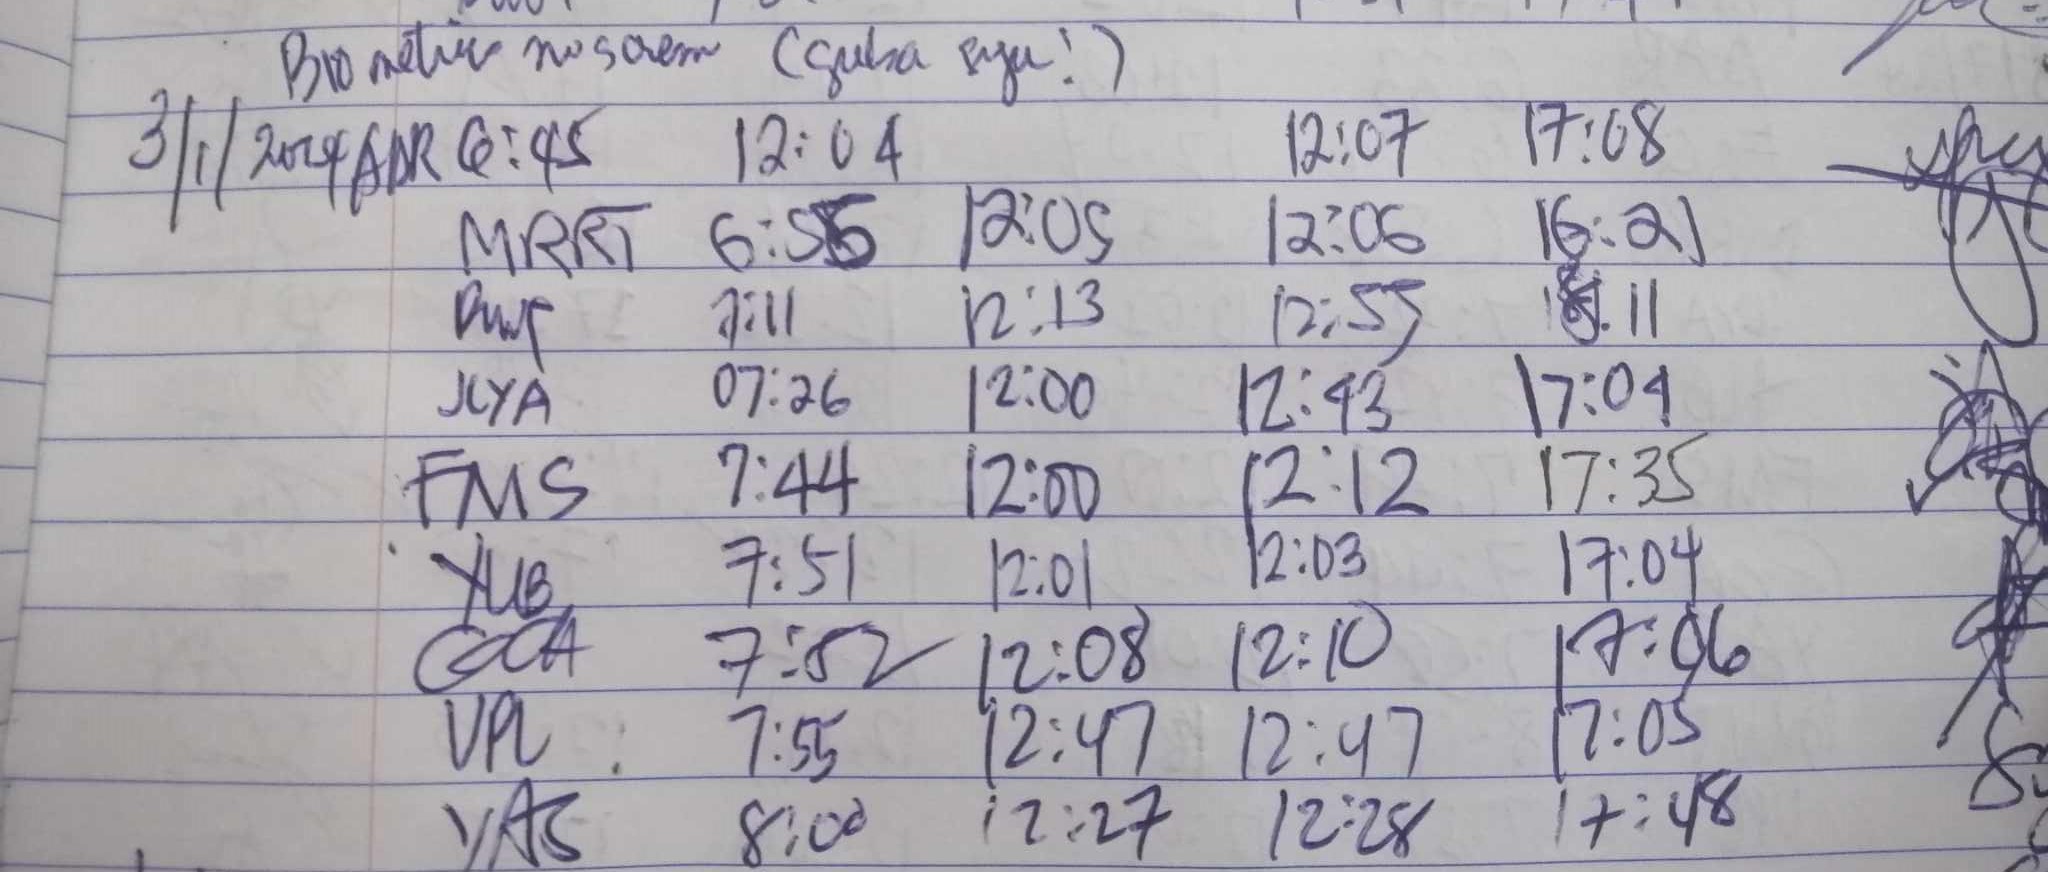 Biometric no screen (guba siya!)
3/1/2024 ADR 6:45 12:04 12:07 17:08
MRRT 6:55 12:05 12:06 16:21
7:11 12:13 12:55 18:11
JLYA 07:26 12:00 12:43 17:04
FMS 7:44 12:00 12:12 17:35
YUB 7:51 12:01 12:03 17:04
GCA 7:52 12:08 12:10 17:06
VPL 7:55 12:47 12:47 17:05
YAS 8:00 12:27 12:28 17:48